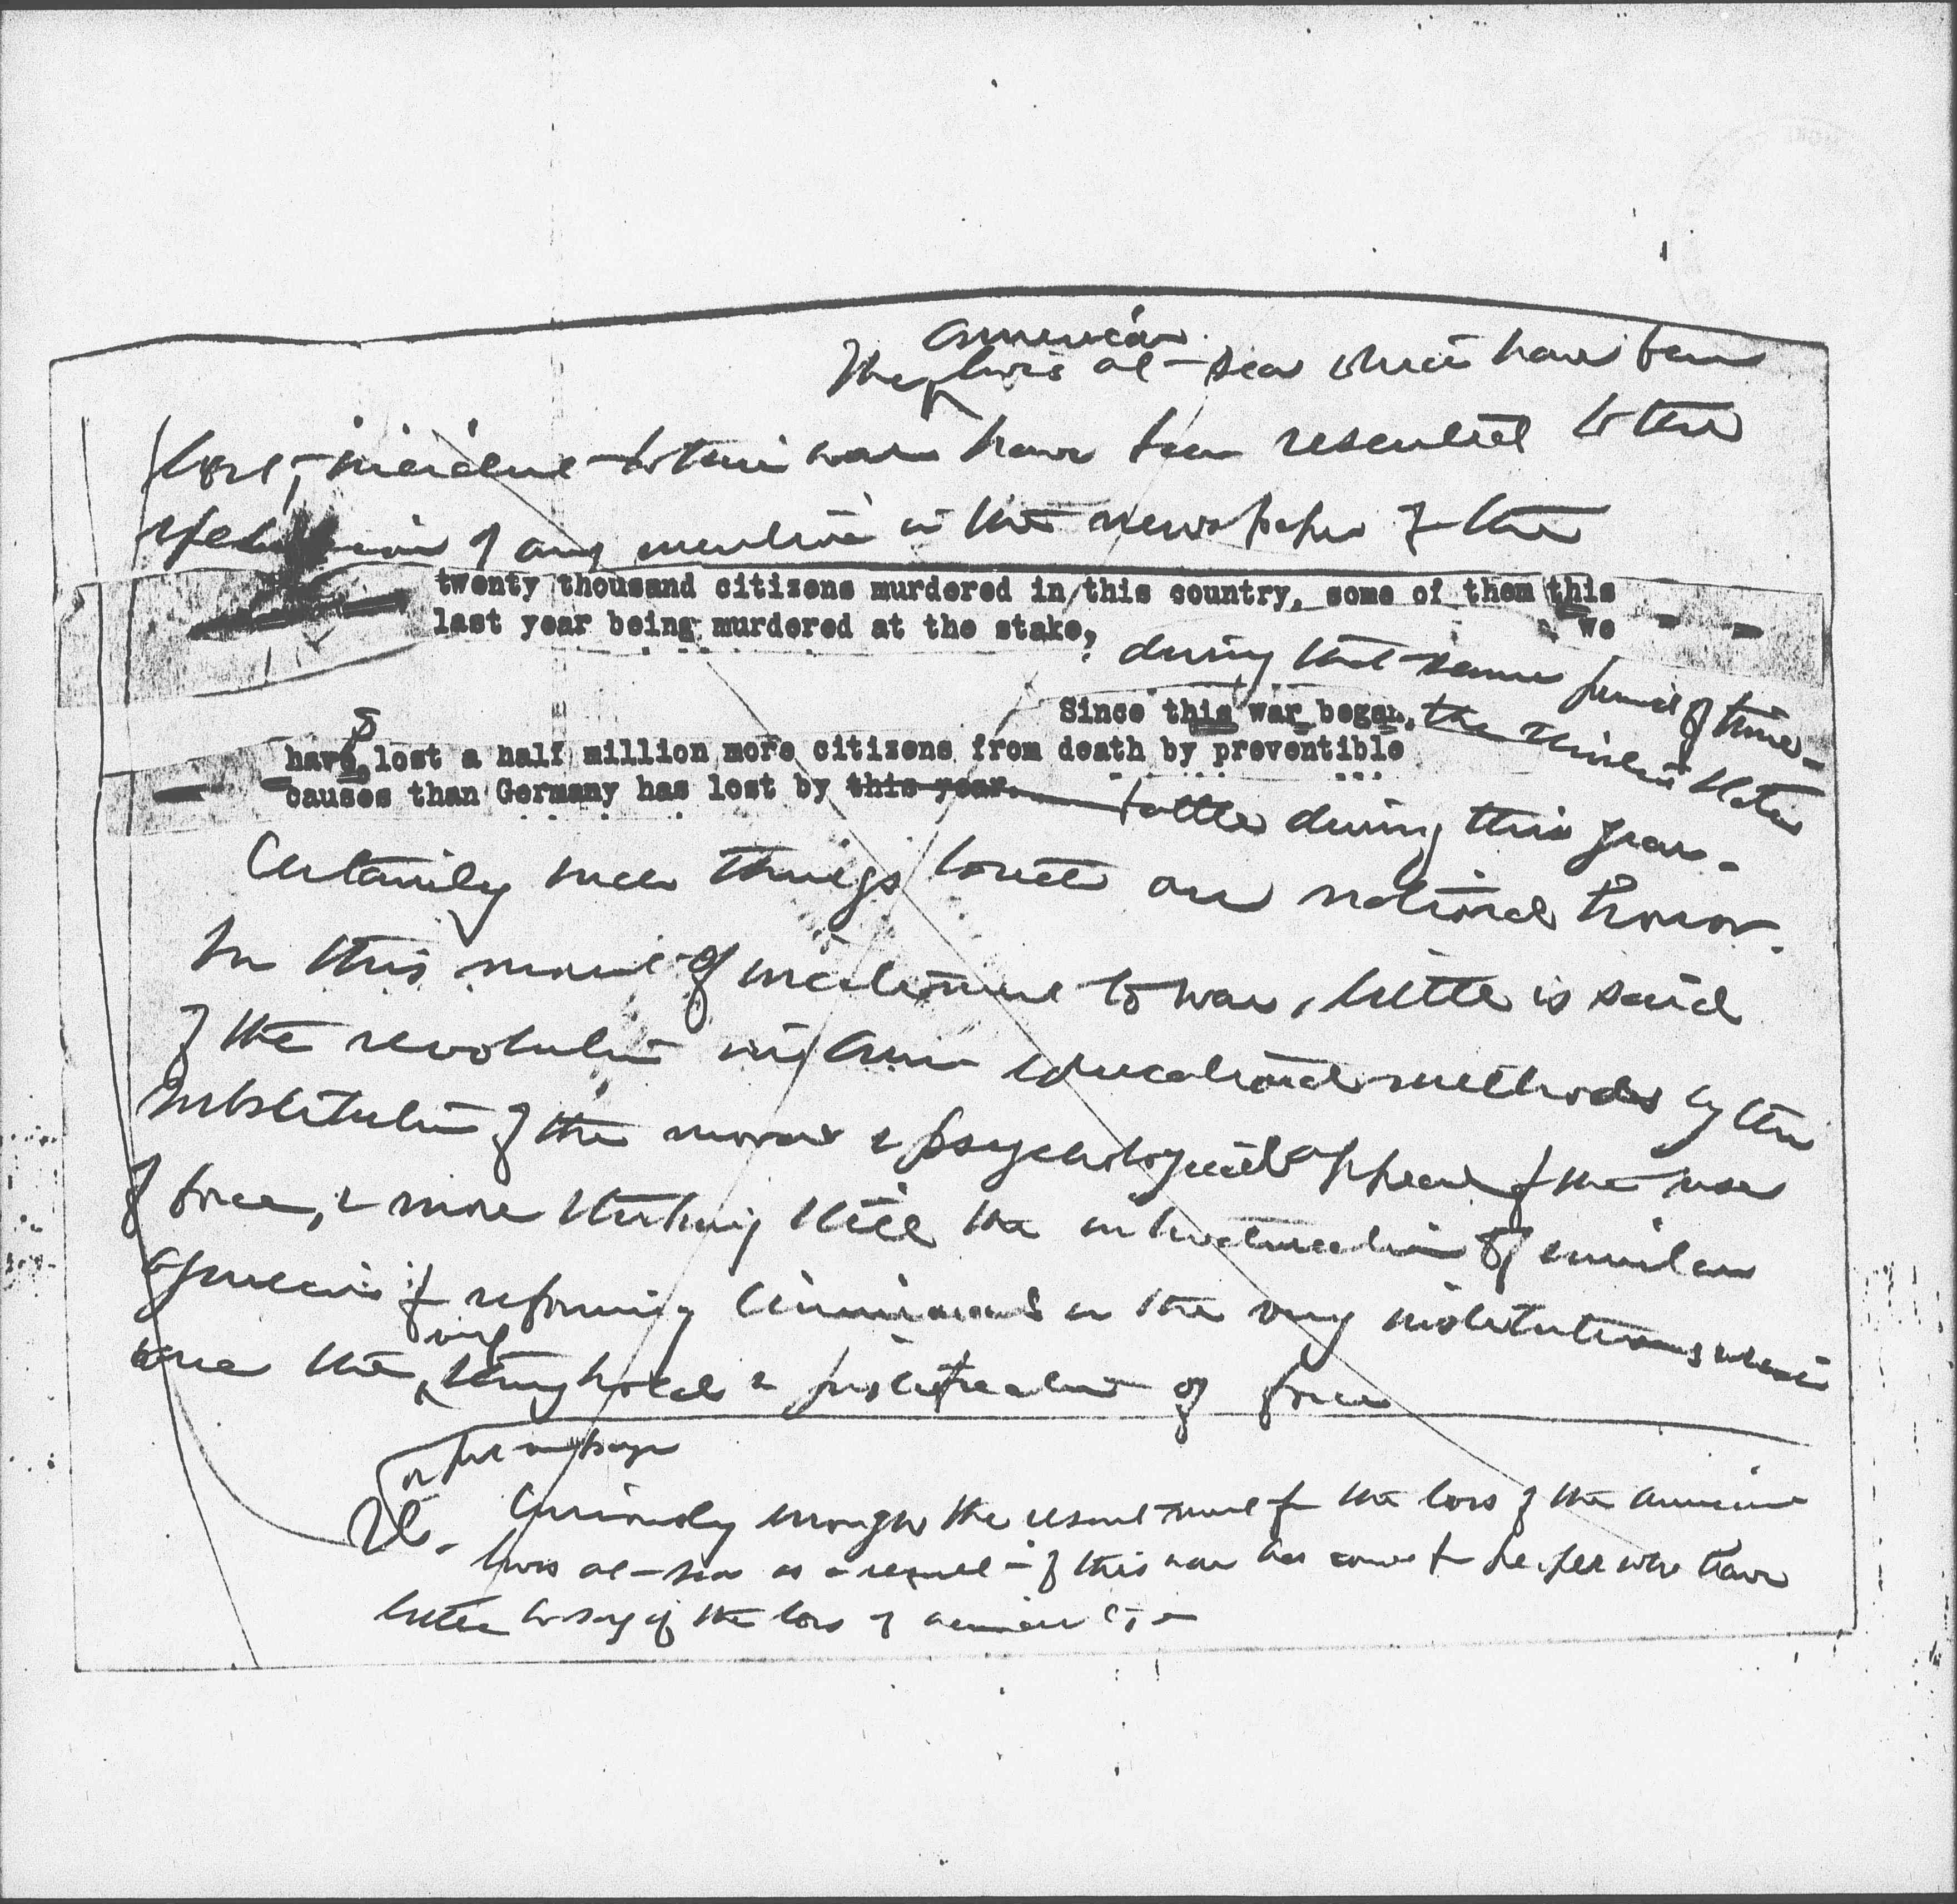 American
The lives at sea which have been
lost, incident to this war have been resented to the
of any mention in the newspaper of the
twenty thousand citizens murdered in this country, some of them this
last year being murdered at the stake, we
? during that same period of time -
Since this war began, the United States
have s lost a half million more citizens from death by preventible
causes than Germany has lost by this year. battle during this year -
Certainly such things touch our national honor.
In this moment of incitement to war, little is said
of the revolution in educational methods by the
substitution of the moral & psychological appeal for the use
of force, & more striking still the introduction of similar
agencies for reforming criminals in the very institutions which
were the very stronghold & justification of force
or perhaps
Curiously enough the resentment for the loss of the American
lives at sea as a result of this war has come from people who have
little to say of the loss of American